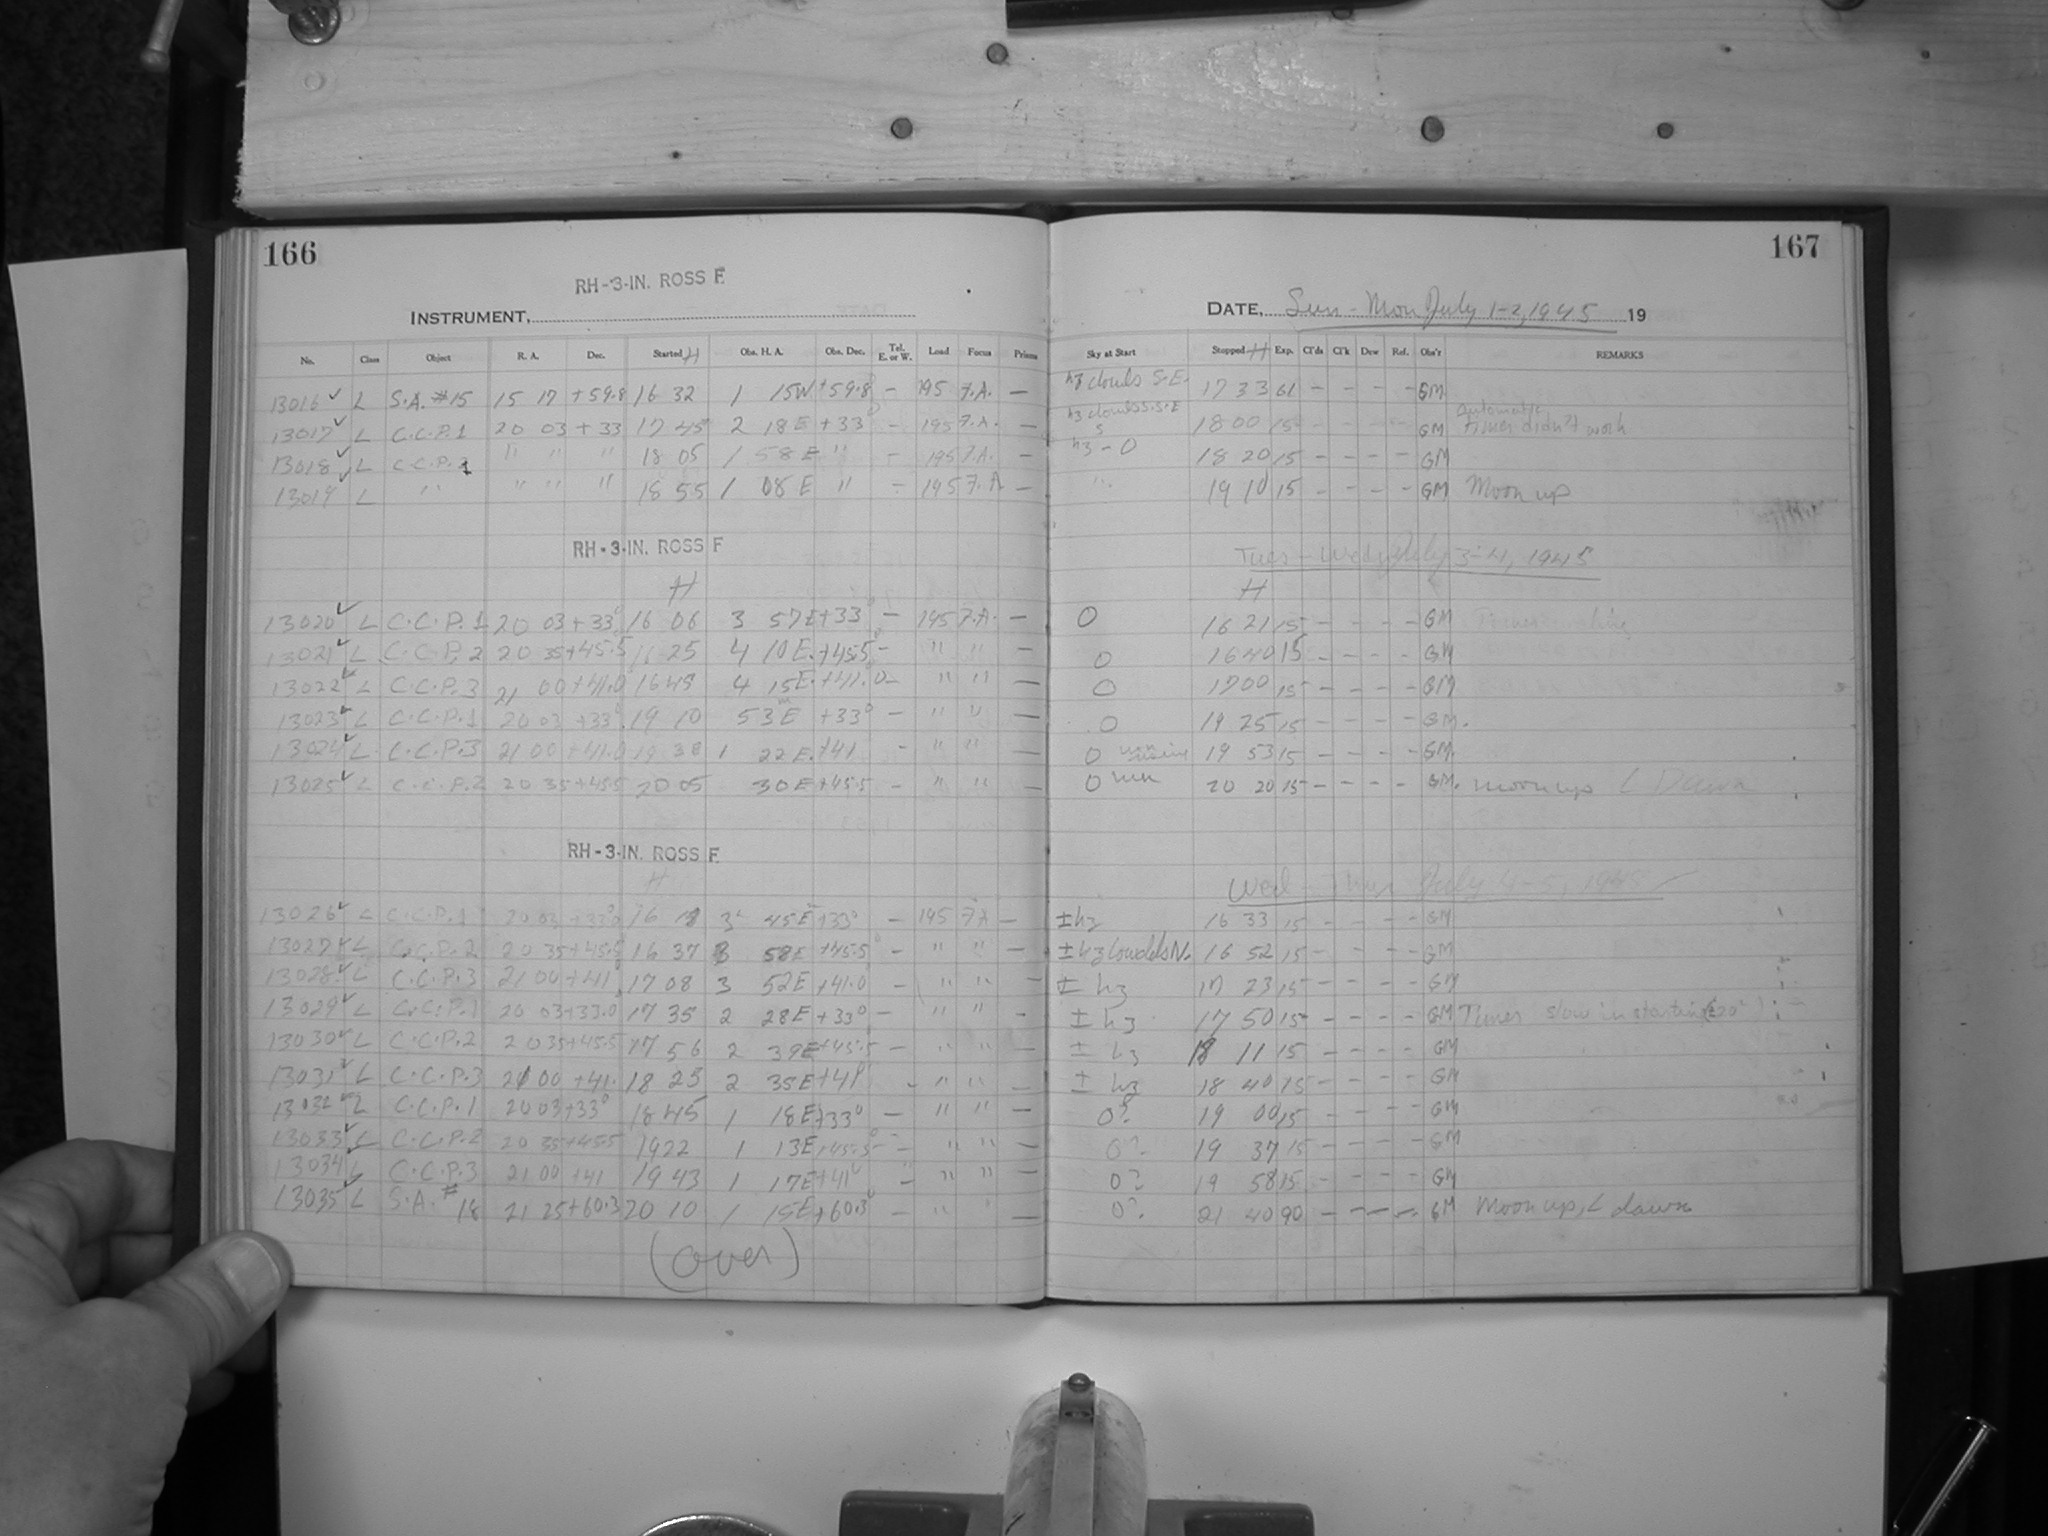 166
167
RH-3-IN. ROSS F.
INSTRUMENT,
DATE, Sun - Mon July 1-2, 1945 19
No. Class Object R. A. Dec. Started H Obs. H. A. Obs. Dec. Tel. E. or W. Load Focus Prisms Sky at Start Stopped H Exp. Cl'ds Cl'k Dew Ref. Obs'r REMARKS
13016 ✓ L S.A. #15 15 17 +59.8 16 32 1 15W +59.8° - 195 F.A. — hz clouds S.E. 17 33 61 - - - - GM
13017 ✓ L C.C.P.1 20 03 + 33 17 45 2 18E +33° - 195 F.A. — hz clouds S.S.E 18 00 15 - - - - GM Automatic timer didn't work
13018 ✓ L C.C.P. 1 " " " 18 05 1 58E " - 195 F.A. — hz - O 18 20 15 - - - - GM
13019 ✓ L " " " " 18 55 1 08E " - 195 F.A — " 19 10 15 - - - - GM Moon up
RH-3-IN. ROSS F
Tues - Wed, July 3-4, 1945
H H
13020 ✓ L C.C.P.1 20 03 + 33° 16 06 3 57E +33° - 195 F.A. — O 16 21 15 - - - - GM
13021 ✓ L C.C.P. 2 20 35 +45.5 16 25 4 10E. +45.5° - " " O 16 40 15 - - - - GM
13022 ✓ L C.C.P.3 21 00 +41.0 16 45 4 15E. +41.0 - " " — O 17 00 15 - - - - GM
13023 ✓ L C.C.P.1 20 03 +33° 19 10 53E +33° - " " — O 19 25 15 - - - - GM.
13024 ✓ L C.C.P.3 21 00 +41.0 19 38 1 22E. +41 - " " — O moon rising 19 53 15 - - - - GM.
13025 ✓ L C.C.P.2 20 35 +45.5 20 05 30E +45.5 - " " — O 20 20 15 - - - - GM. moon up L Dawn
RH-3-IN. ROSS F.
H
Wed - Thur July 4-5, 1945
13026 ✓ L C.C.P.1 20 03 +33° 16 18 3 45E +33° - 195 F.A — ± hz 16 33 15 - - - - GM
13027 ✓ L C.C.P.2 20 35 +45.5 16 37 3 58E +45.5° - " " — ± hz N. 16 52 15 - - - - GM
13028 ✓ L C.C.P.3 21 00 +41° 17 08 3 52E +41.0 - " " — ± hz 17 23 15 - - - - GM
13029 ✓ L C.C.P.1 20 03 +33.0 17 35 2 28E +33° - " " — ± hz 17 50 15 - - - - GM Timer slow in starting
13030 ✓ L C.C.P.2 20 35 +45.5 17 56 2 39E +45.5 - " " — ± hz 18 11 15 - - - - GM
13031 ✓ L C.C.P.3 21 00 +41. 18 25 2 35E +41° - " " — ± hz 18 40 15 - - - - GM
13032 ✓ L C.C.P.1 20 03 +33° 18 45 1 18E +33° - " " — O? 19 00 15 - - - - GM
13033 ✓ L C.C.P.2 20 35 +45.5 19 22 1 13E +45.5° - " " — O? 19 37 15 - - - - GM
13034 L C.C.P.3 21 00 +41 19 43 1 17E +41° - " " — O? 19 58 15 - - - - GM
13035 ✓ L S.A. #18 21 25 +60.3 20 10 1 15E +60.3° - " " — O? 21 40 90 - - - - GM Moon up, L dawn
(Over)